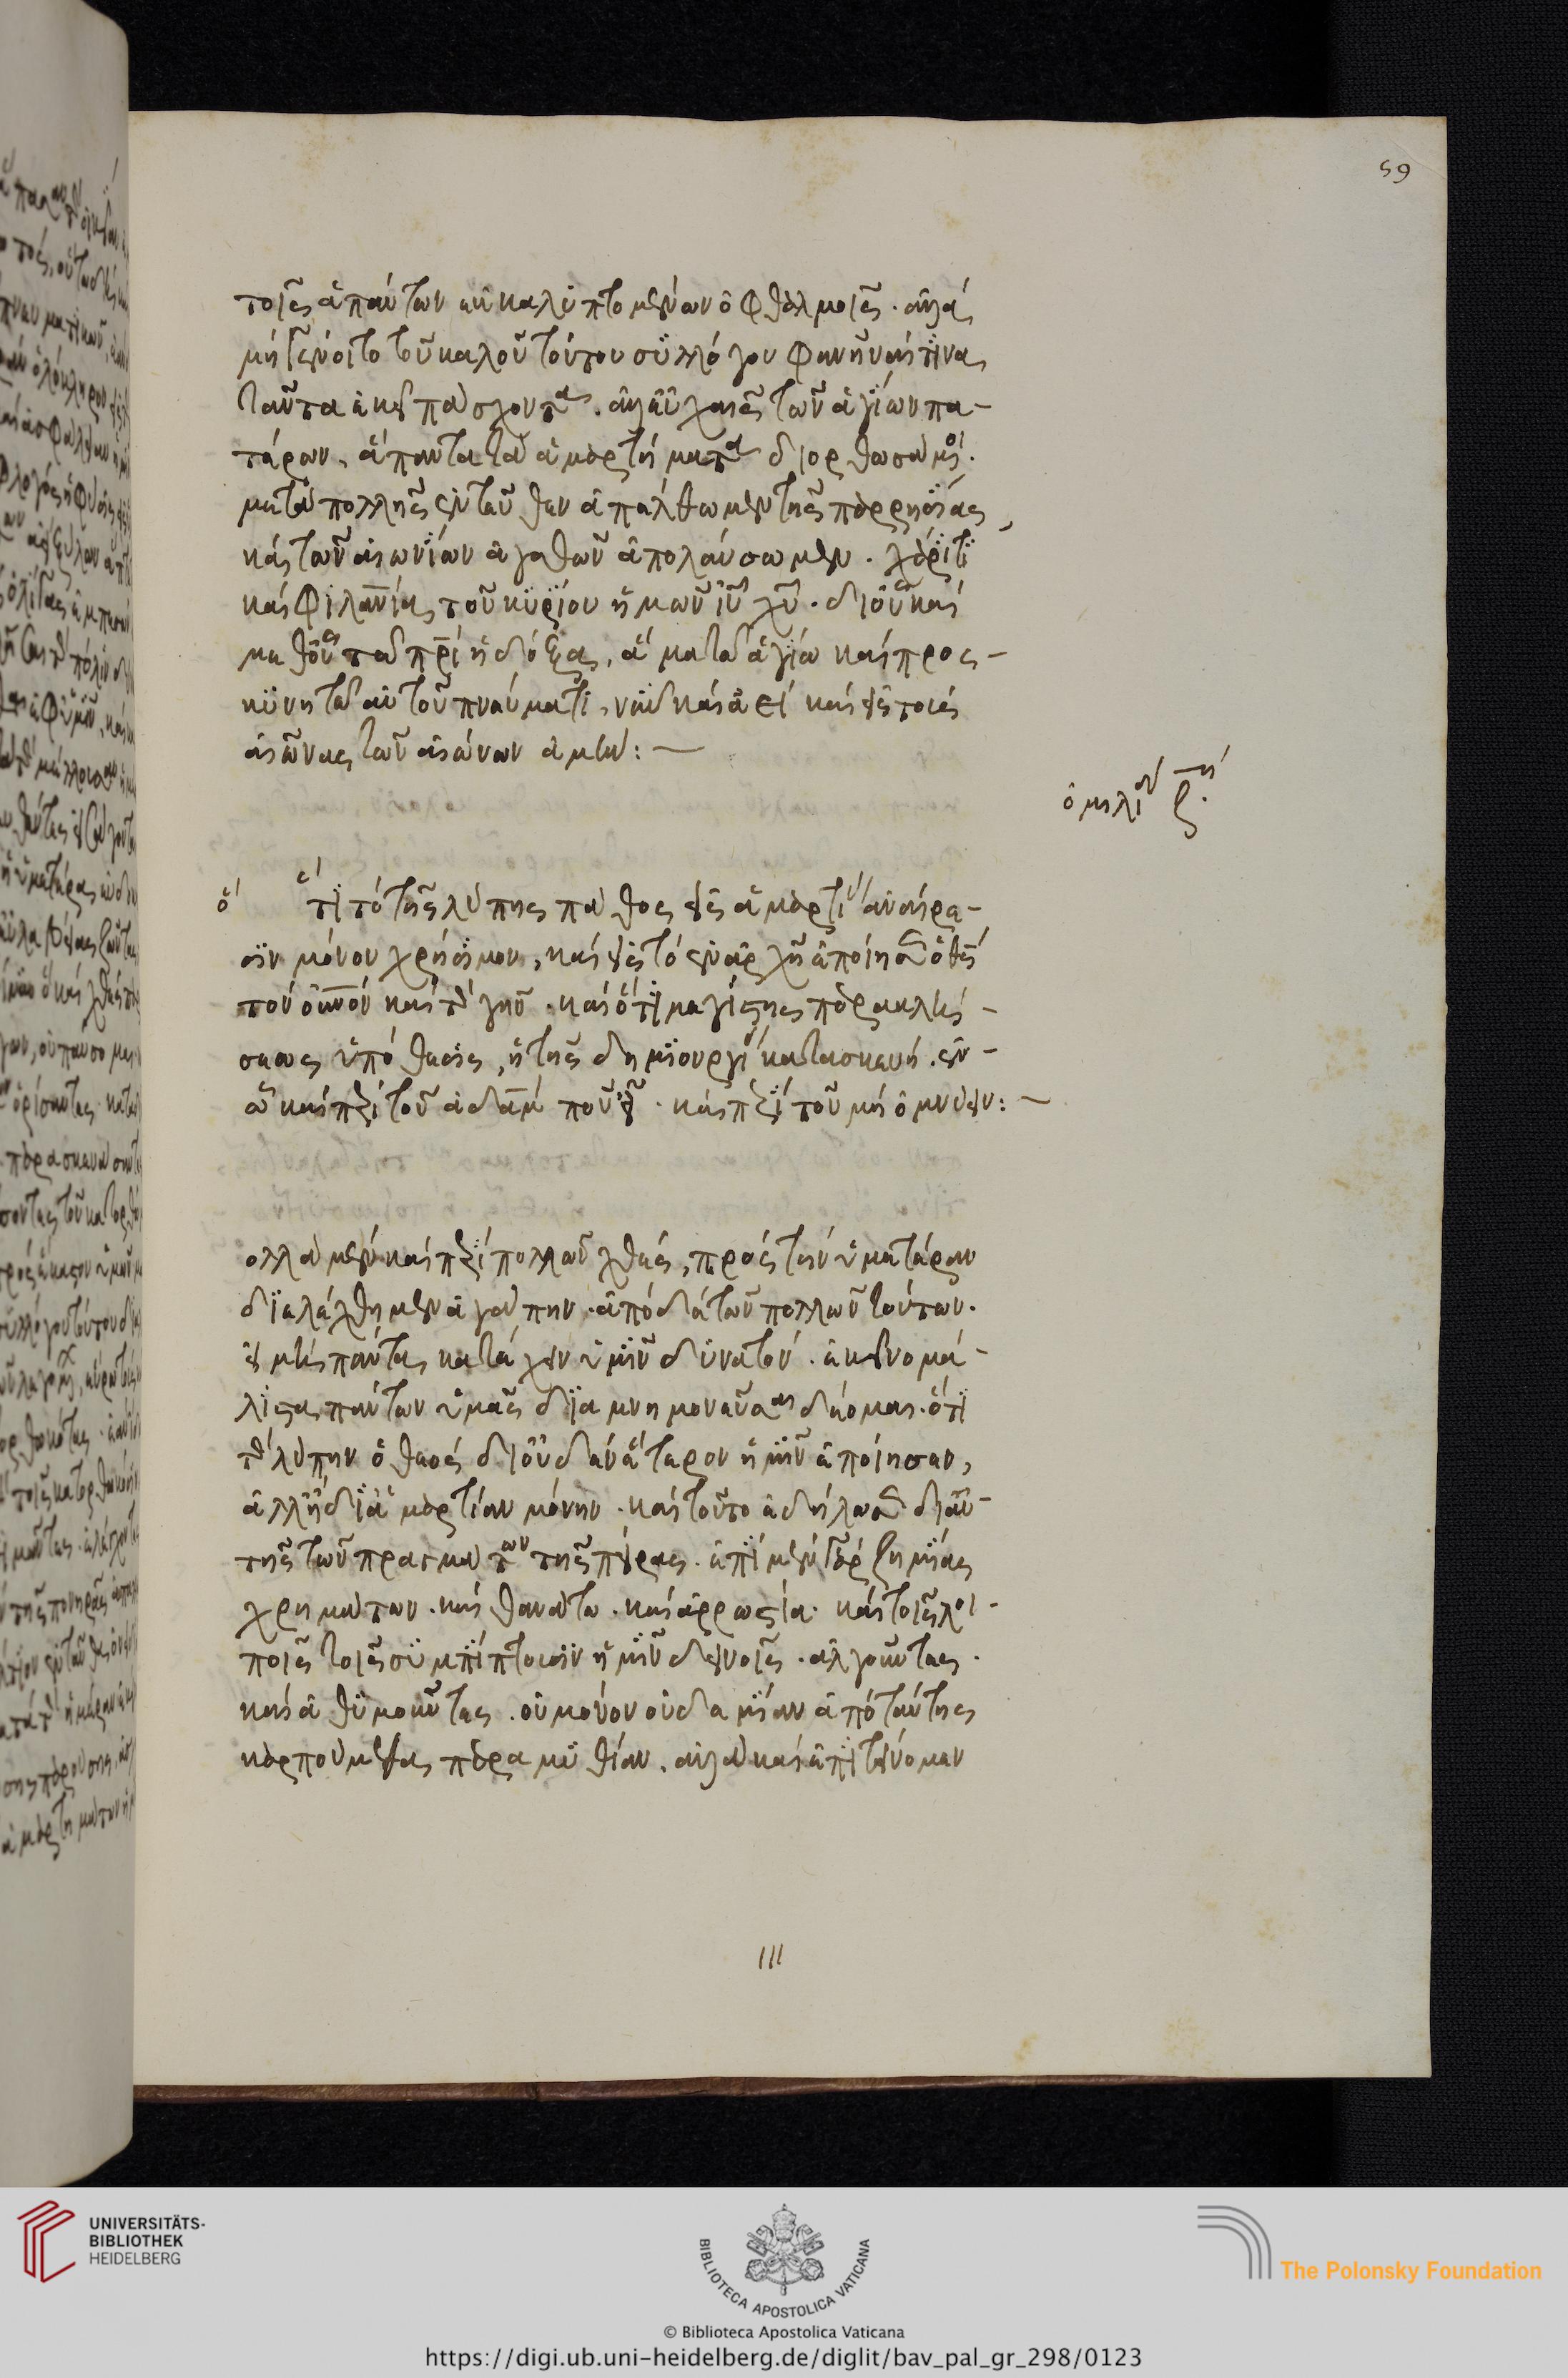 59
τοῖς ἁπάντων ἐκκαλύπτομένων ὀφθαλμοῖς. ἀλλὰ
μὴ γένοιτο τοῦ καλοῦ τούτου συλλόγου φανῆναί τινα
ταῦτα ἐκεῖ πάσχοντα. ἀλλ' εὐχαῖς τῶν ἁγίων πα-
τέρων, ἅπαντα τὰ ἁμαρτήματα διορθωσάμενοι.
μετὰ πολλῆς ἐνταῦθεν ἀπέλθωμεν τῆς παρρησίας,
καὶ τῶν αἰωνίων ἀγαθῶν ἀπολαύσωμεν. χάριτι
καὶ φιλανίας τοῦ κυρίου ἡμῶν ἰῦ χῦ. δι' οὗ καὶ
μεθ' οὗ τῶ πρὶ ἡ δόξα, ἅμα τῶ ἁγίω καὶ προς-
κυνητῶ αὐτοῦ πνεύματι, νῦν καὶ ἀεὶ καὶ εἰς τοὺς
αἰῶνας τῶν αἰώνων ἀμήν:—
ὁμιλία ζ.
ὅτι τὸ τῆς λύπης πάθος εἰς ἁμαρτίας ἀναίρε-
σιν μόνον χρήσιμον, καὶ εἰς τὸ ἐν ἀρχῆ ἐποίησεν ὁ θς
τὸν οὐνὸν καὶ τὴν γῆν. καὶ ὅτι μεγίστης παρακλή-
σεως ὑπόθεσις, ἡ τῆς δημιουργίας κατασκευή. ἐν
ὧ καὶ περὶ τοῦ ἀδὰμ ποῦ εἶ. καὶ περὶ τοῦ μὴ ὀμνύειν:—
ολλὰ μὲν καὶ περὶ πολλῶν χθὲς, πρὸς τὴν ὑμετέραν
διελέχθημεν ἀγάπην. ἀπὸ δὲ τῶν πολλῶν τούτων.
εἰ μὴ πάντα κατέχειν ὑμῖν δυνατόν. ἐκεῖνο μά-
λιστα πάντων ὑμᾶς διαμνημονεῦσαι δέομαι. ὅτι
τὴν λύπην ὁ θεὸς δι' οὐδὲν ἕτερον ἡμῖν ἐποίησεν,
ἀλλ' ἢ δι' ἁμαρτίαν μόνην. καὶ τοῦτο ἐδήλωσε δι' αὐ-
τῆς τῶν πραγμάτων τῆς πείρας. ἐπὶ μὲν γὰρ ζημίας
χρημάτων. καὶ θανάτω. καὶ ἀρρωστία. καὶ τοῖς λοι-
ποῖς τοῖς συμπίπτουσιν ἡμῖν δεινοῖς. ἀλγοῦντες.
καὶ ἀθυμοῦντες. οὐ μόνον οὐδεμίαν ἀπὸ ταύτης
καρπούμεθα παραμυθίαν. ἀλλὰ καὶ ἐπιτείνομεν
UNIVERSITÄTS-
BIBLIOTHEK
HEIDELBERG
BIBLIOTECA APOSTOLICA VATICANA
The Polonsky Foundation
© Biblioteca Apostolica Vaticana
https://digi.ub.uni-heidelberg.de/diglit/bav_pal_gr_298/0123